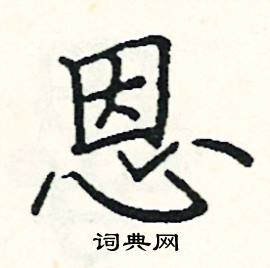 恩
词典网